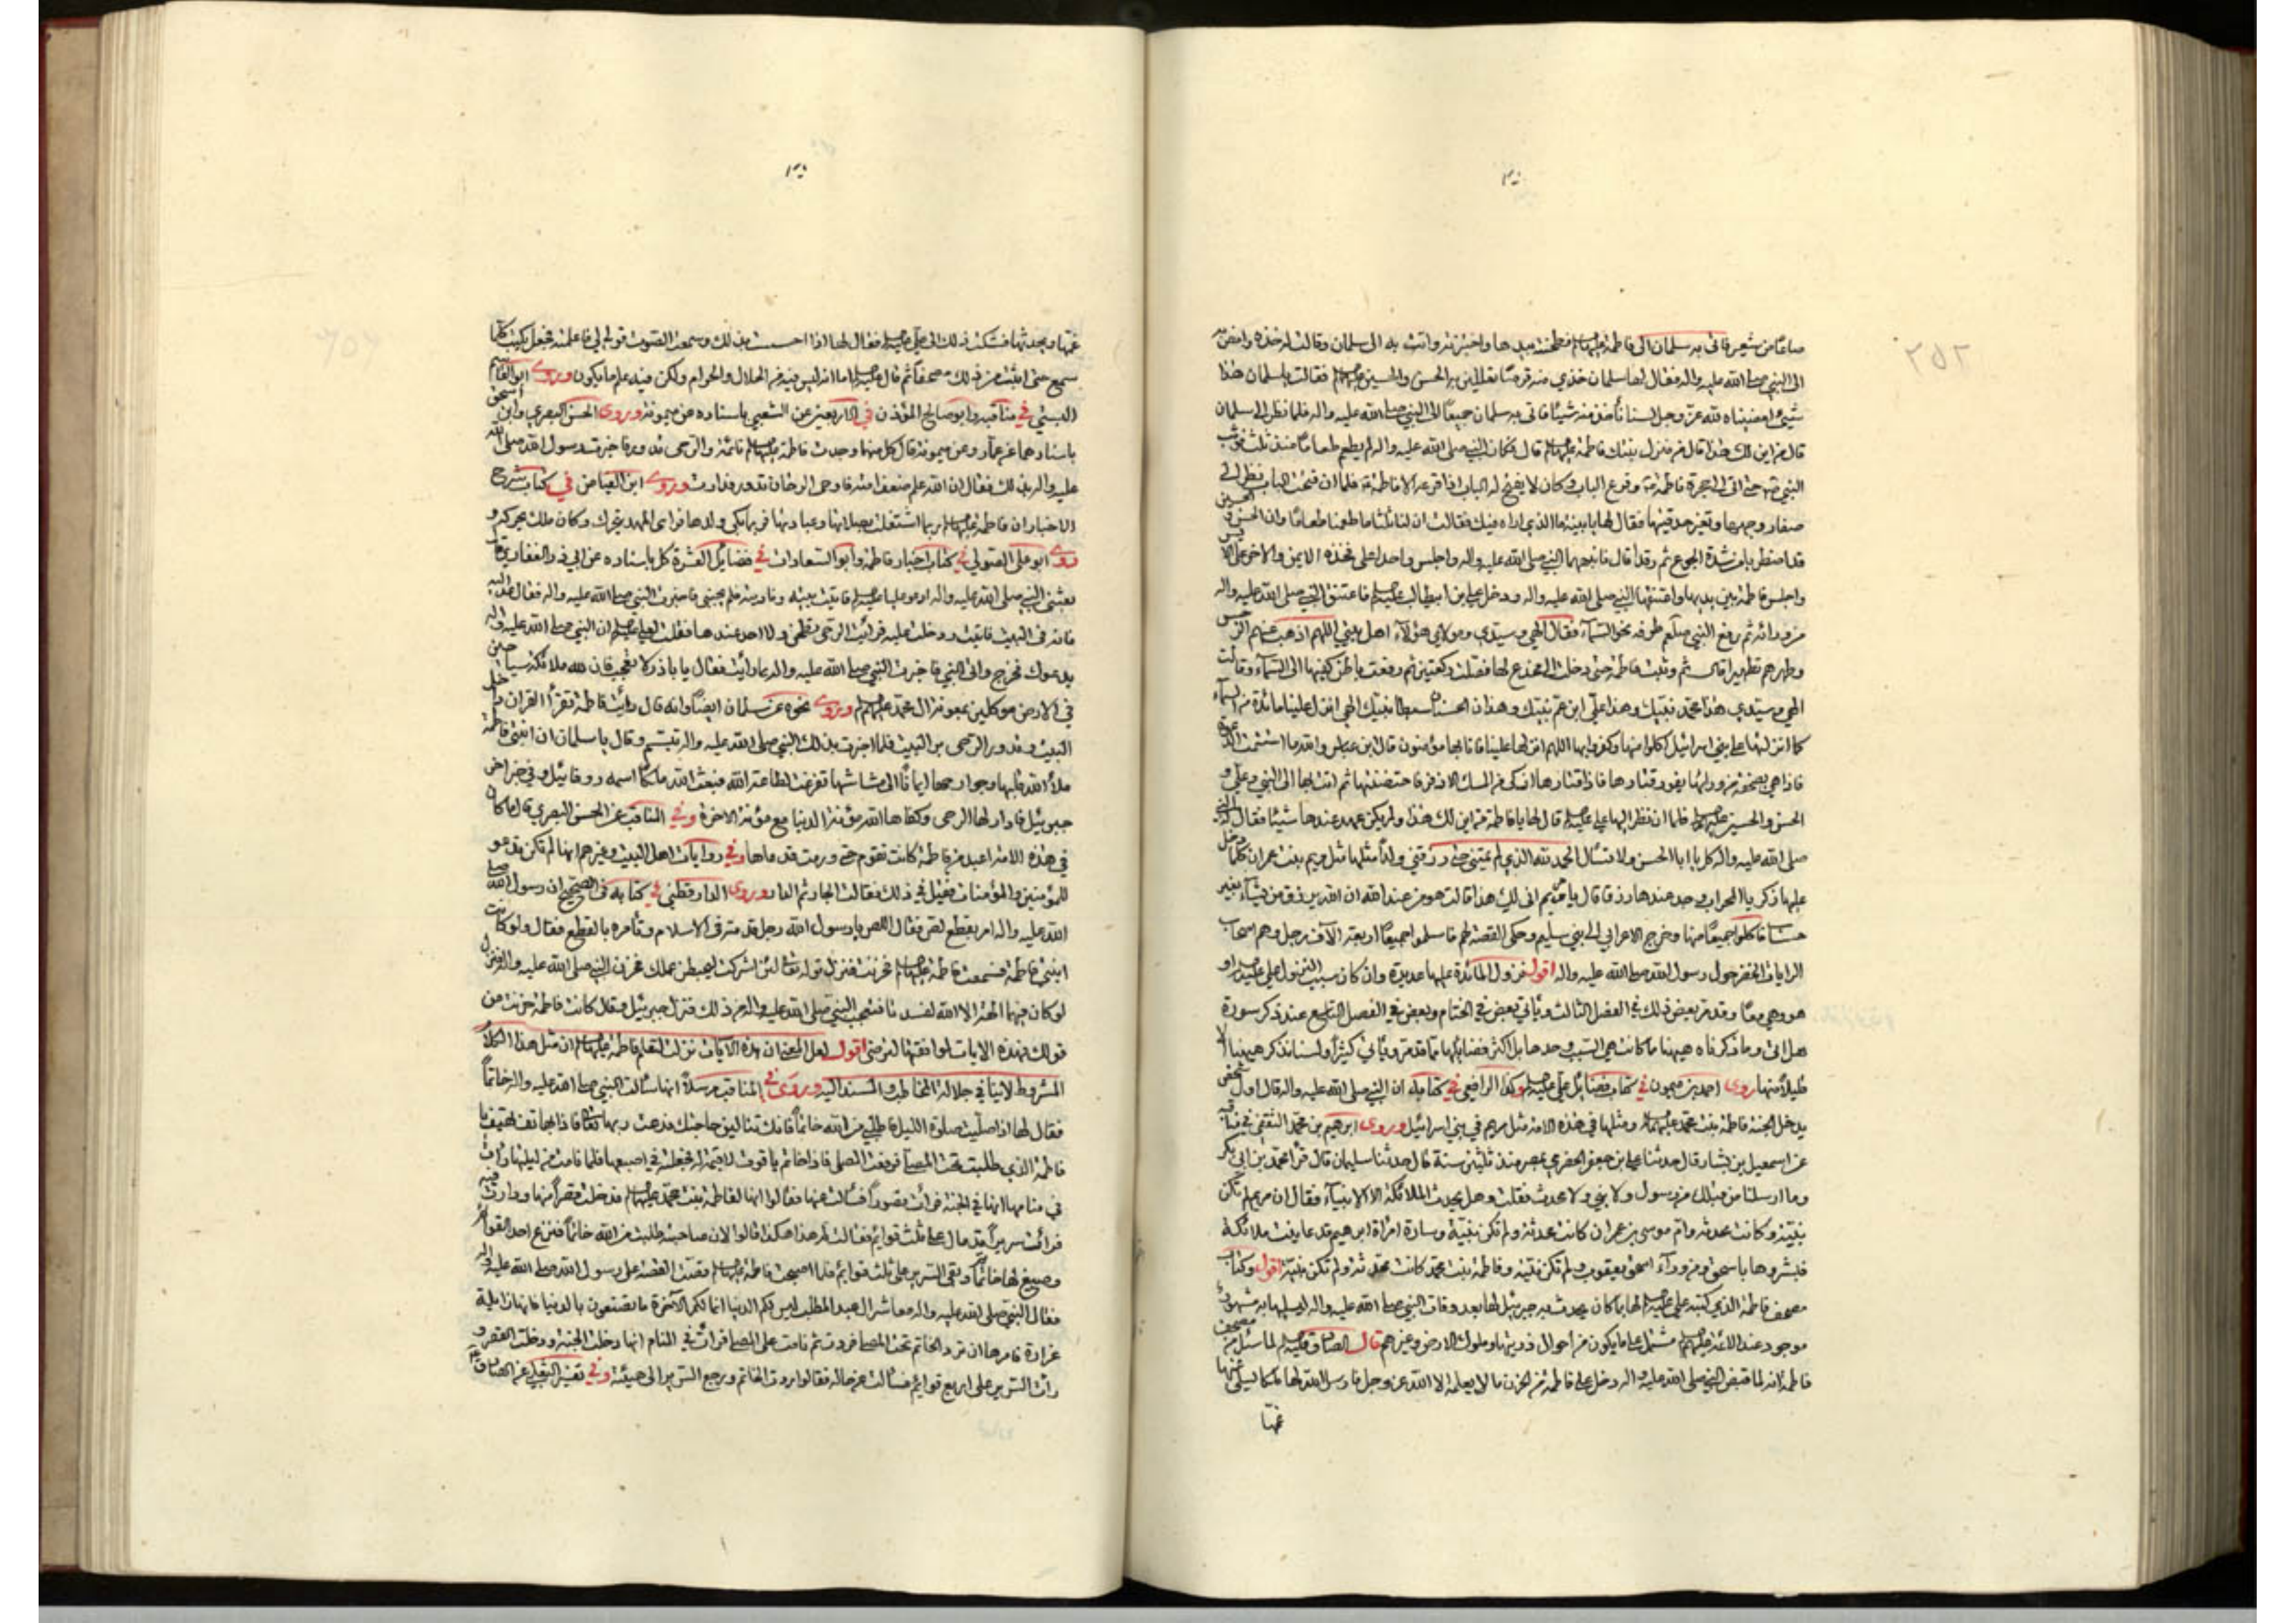 صاعًا من شعير فاتى به سلمان الى فاطمة عليها السلام فطحنته بيدها واختبزته واتت به الى سلمان وقالت له خذه وامض به
الى النبي صلى الله عليه واله فقال لها سلمان خذي منه قرصًا تعللين به الحسن والحسين عليهما فقالت يا سلمان هذا
شيئ امضيناه لله عز وجل لسنا نأخذ منه شيئًا فاتى به سلمان جميعًا الى النبي صلى الله عليه واله فلما نظر الى سلمان
قال من اين لك هذا قال من منزل بنتك فاطمة عليها قال وكان النبي صلى الله عليه واله لم يطعم طعامًا منذ ثلث فوثب
النبي حتى اتى الى حجرة فاطمة وقرع الباب وكان لا يفتح له الباب اذا قرعه الا فاطمة فلما ان فتحت الباب نظر الى
صفار وجهها وتغير حدقتيها فقال لها يا بنية ما الذي اراه فيك فقالت ان لنا ثلثا ما طعمنا طعامًا وان الحسن والحسين
قد اضطربا من شدة الجوع ثم رقدا قال فانبههما النبي صلى الله عليه واله واجلس واحدا على فخذه الايمن والاخر على الا
يسر
واجلس فاطمة بين يديها واعتنقها النبي صلى الله عليه واله ودخل علي بن ابيطالب عليه فاعتنق النبي صلى الله عليه واله
من ورائه ثم رفع النبي صلعم طرفه نحو السماء فقال الهي وسيدي ومولاي هؤلاء اهل بيتي اللهم اذهب عنهم الرجس
وطهرهم تطهيرا قال ثم وثبت فاطمة حتى دخلت الى مخدع لها فصلت ركعتين ثم رفعت باطن كفيها الى السماء وقالت
الهي وسيدي هذا محمد نبيك وهذا علي ابن عم نبيك وهذان الحسنان سبطا نبيك الهي انزل علينا مائدة من السماء
كما انزلتها على بني اسرائيل اكلوا منها وكفروا بها اللهم انزلها علينا فانا بها مؤمنون قال ابن عباس والله ما استتمت الدعوة
فاذا هي بصحفة من ورائها يفور قتارها فاذا قتارها اذكى من المسك الاذفر فاحتضنتها ثم اتت بها الى النبي وعلي و
الحسن والحسين عليهم فلما ان نظر اليها علي عليه قال لها يا فاطمة من اين لك هذا ولم يكن عهد عندها شيئًا فقال له النبي
صلى الله عليه واله كل يا ابا الحسن ولا تسأل الحمد لله الذي لم يمتني حتى رزقني ولدًا مثلها مثل مريم بنت عمران كلما دخل
عليها زكريا المحراب وجد عندها رزقا قال يا مريم انى لك هذا قالت هو من عند الله ان الله يرزق من يشاء بغير
حساب فاكلوا جميعًا منها وخرج الاعرابي الى بني سليم وحكى القصة لهم فاسلموا جميعًا اربعة الآف رجل وهم اصحاب
الرايات الخضر حول رسول الله صلى الله عليه واله اقول نزول المائدة عليها عديدة وان كان سبب النزول علي عليه او
هو وهي معًا وقد مر بعض ذلك في الفصل الثالث ويأتي بعض في الختام وبعض في الفصل التاسع عند ذكر سورة
هل اتى وما ذكرناه هيهنا ما كانت هي السبب وحدها بل اكثر فضايلها مما قد مر ويأتي كثيرًا ولسنا نذكر هيهنا الا
قليلًا منها روى احمد بن ميمون في كتاب فضايل علي عليه وكذا الرافعي في كتابه ان النبي صلى الله عليه واله قال اول شخص
يدخل الجنة فاطمة بنت محمد عليهما ومثلها في هذه الامة مثل مريم في بني اسرائيل وروى ابرهيم بن محمد الثقفي في مناقبه
عن اسمعيل بن بشار قال حدثنا علي بن جعفر الحضرمي بمصر منذ ثلثين سنة قال حدثنا سليمان قال قرأ محمد بن ابي بكر
وما ارسلنا من قبلك من رسول ولا نبي ولا محدث فقلت وهل يحدث الملائكة الا الانبياء فقال ان مريم لم تكن
نبية وكانت محدثة وام موسى بن عمران كانت محدثة ولم تكن نبية وسارة امرأة ابرهيم قد عاينت ملائكة
فبشروها باسحق ومن وراء اسحق يعقوب ولم تكن نبية وفاطمة بنت محمد كانت محدثة ولم تكن نبية اقول وكتاب
مصحف فاطمة الذي كتبه علي عليه لها بما كان يحدث به جبرئيل لها بعد وفات النبي صلى الله عليه واله ليسليها به مشهور
موجود عند الائمة عليهم مشتمل على ما يكون من احوال ذريتها وملوك الارض وغيرهم قال الصادق عليه لما سئل من مصحف
فاطمة انه لما قبض النبي صلى الله عليه واله دخل على فاطمة من الحزن ما لا يعلمه الا الله عز وجل فارسل الله لها ملكا يسلي عنها
غمها
غمها ويحدثها فشكت ذلك الى علي عليه فقال لها اذا احسست بذلك وسمعت الصوت قولي لي فاعلمته فجعل يكتب كلما
سمع حتى اثبت من ذلك مصحفًا ثم قال عليه اما انه ليس فيه من الحلال والحرام ولكن فيه علم ما يكون وروى ابو القاسم
البستي في مناقبه وابو صالح المؤذن في الاربعين عن الشعبي باسناده عن ميمونة وروى الحسن البصري وابن اسحق
باسنادهما عن عمار وعن ميمونة قال كل منهما وجدت فاطمة عليها نائمة والرحى تدور فاخبرت رسول الله صلى الله
عليه واله بذلك فقال ان الله علم ضعف امته فاوحى الى الرحا ان تدور فدارت وروى ابن الفياض في كتاب شرح
الاخبار ان فاطمة عليها ربما اشتغلت بصلاتها وعبادتها فربما بكى ولدها فرأى المهد يتحرك وكان ملك يحركه و
روى ابو علي الصولي في كتاب اخبار فاطمة وابو السعادات في فضايل العشرة كل باسناده عن ابي ذر الغفاري قال
بعثني النبي صلى الله عليه واله ادعو عليا عليه فاتيت بيته وناديته فلم يجبني فاخبرت النبي صلى الله عليه واله فقال عد اليه
فانه في البيت فاتيت ودخلت عليه فرأيت الرحى تطحن ولا احد عندها فقلت لعلي عليه ان النبي صلى الله عليه واله
يدعوك فخرج واتى النبي فاخبرت النبي صلى الله عليه واله بما رأيت فقال يا باذر لا تعجب فان لله ملائكة سياحين
في الارض موكلين بمعونة ال محمد عليهم وروى نحوه عن سلمان ايضًا وانه قال رأيت فاطمة تقرأ القران داخل
البيت وتدور الرحى من البيت فلما اخبرت بذلك النبي صلى الله عليه واله تبسم وقال يا سلمان ان ابنتي فاطمة
ملأ الله قلبها وجوارحها ايمانًا الى مشاشها تفرغت لطاعة الله فبعث الله ملكًا اسمه روفائيل وفي خبر اخر
جبرئيل فادار لها الرحى وكفاها الله مؤنة الدنيا مع مؤنة الاخرة وفي المناقب عن الحسن البصري قال ما كان
في هذه الامة اعبد من فاطمة كانت تقوم حتى ورمت قدماها وفي روايات اهل البيت وغيرهم انها لم تكن تدعو
للمؤمنين والمؤمنات فقيل في ذلك فقالت الجار ثم الدار وروى الدارقطني في كتابه في الصحيح ان رسول الله صلى
الله عليه واله امر بقطع لص فقال اللص يا رسول الله رجل قدمته في الاسلام وتأمره بالقطع فقال ولو كانت
ابنتي فاطمة فسمعت فاطمة عليها فحزنت فنزل قوله تعالى لئن اشركت ليحبطن عملك فحزن النبي صلى الله عليه واله فنزل
لو كان فيهما الهة الا الله لفسدتا فتعجب النبي صلى الله عليه واله من ذلك فنزل جبرئيل وقال كانت فاطمة حزنت من
قولك فهذه الايات لموافقتها لترضى اقول لعل المعنى ان هذه الآيات نزلت لتعلم فاطمة عليها ان مثل هذا الكلام
المشروط لا ينافي جلالة المخاطب والمسند اليه وروى في المناقب مرسلًا انها سألت النبي صلى الله عليه واله خاتمًا
فقال لها اذا صليت صلوة الليل فاطلبي من الله خاتمًا فانك تنالين حاجتك فدعت ربها تعالى فاذا بهاتف يهتف يا
فاطمة الذي طلبت تحت المصلى فرفعت المصلى فاذا خاتم ياقوت لا قيمة له فجعلته في اصبعها فلما نامت من ليلتها رأت
في منامها انها في الجنة فرأت قصورًا فسألت عنها فقالوا انها لفاطمة بنت محمد عليهما فدخلت قصرًا منها ودارت فيه
فرأت سريرًا قد مال على ثلث قوائم فقالت لم هذا هكذا قالوا لان صاحبته طلبت من الله خاتمًا فنزع احد القوائم
وصيغ لها خاتمًا وبقي السرير على ثلث قوائم فلما اصبحت فاطمة عليها قصت القصة على رسول الله صلى الله عليه واله
فقال النبي صلى الله عليه واله معاشر ال عبد المطلب ليس لكم الدنيا انما لكم الآخرة ما تصنعون بالدنيا فانها زايلة
غرارة فامرها ان ترد الخاتم تحت المصلى فردت ثم نامت على المصلى فرأت في المنام انها دخلت الجنة ودخلت القصر و
رأت السرير على اربع قوائم فسألت عن حاله فقالوا ردت الخاتم ورجع السرير الى هيئته وفي تفسير الثعلبي عن الصادق